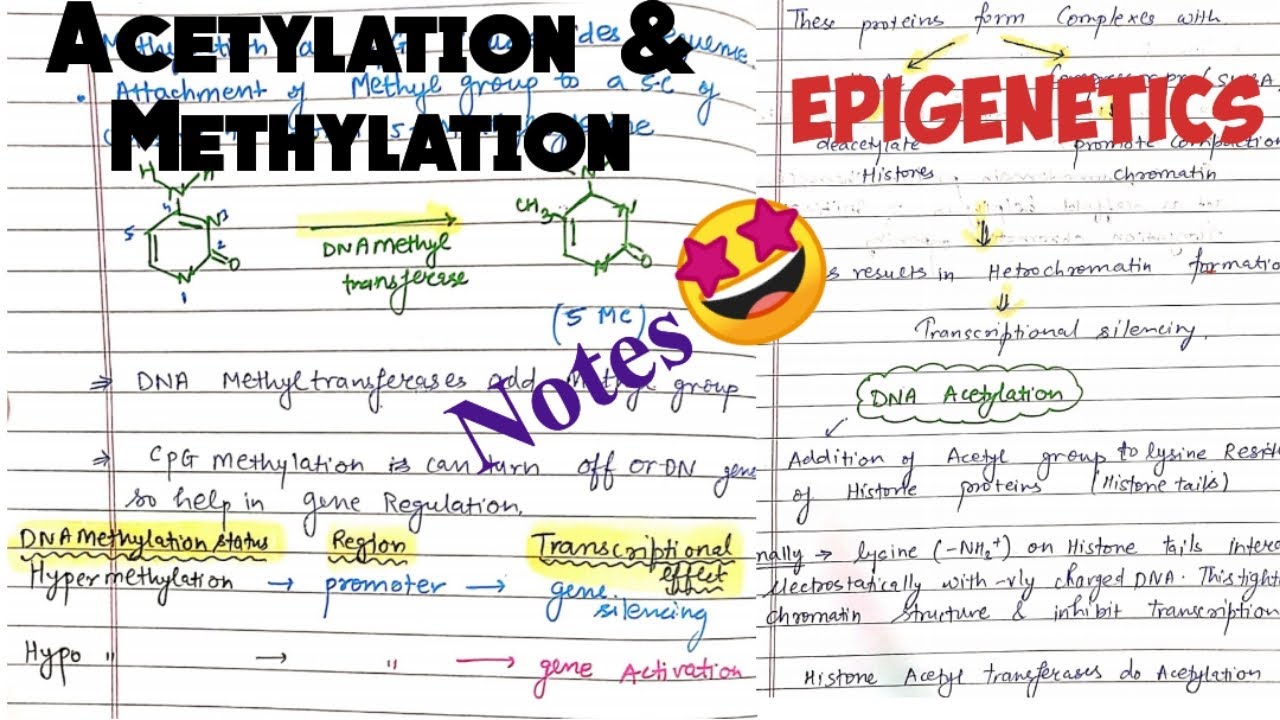 ACETYLATION &
METHYLATION
EPIGENETICS
Notes
• Attachment of Methyl group to a 5-C of
H
N
H
4
N3
5
2
O
N
1
DNA Methyl
transferase
CH3
N
N
O
(5 Mc)
⇒ DNA Methyltransferases add group
⇒ CpG methylation is can turn off or DN gene
so help in gene Regulation.
DNA Methylation status Region Transcriptional
effect
Hypermethylation → promoter → gene
silencing
Hypo " → " → gene Activation
These proteins form Complexes with
deacetylate promote compaction
Histones chromatin
results in Hetrochromatin formatio
Transcriptional silencing.
DNA Acetylation
Addition of Acetyl group to lysine
of Histone proteins (Histone tails)
nally → lysine (-NH2+) on Histone tails intera
electrostatically with -vly charged DNA. This tight
chromatin structure & inhibit transcription
Histone Acetyl transferases do Acetylation